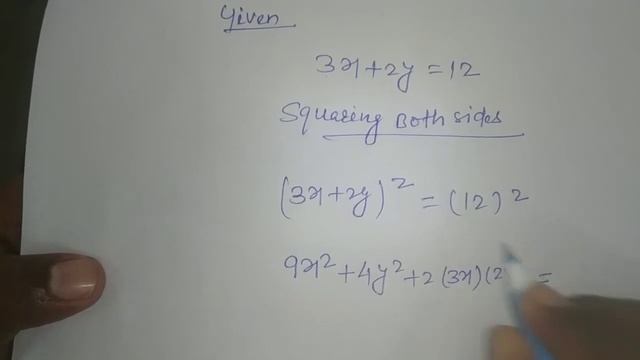 Given
3x+2y=12
Squaring Both sides
(3x+2y)² = (12)²
9x²+4y²+2(3x)(2 =